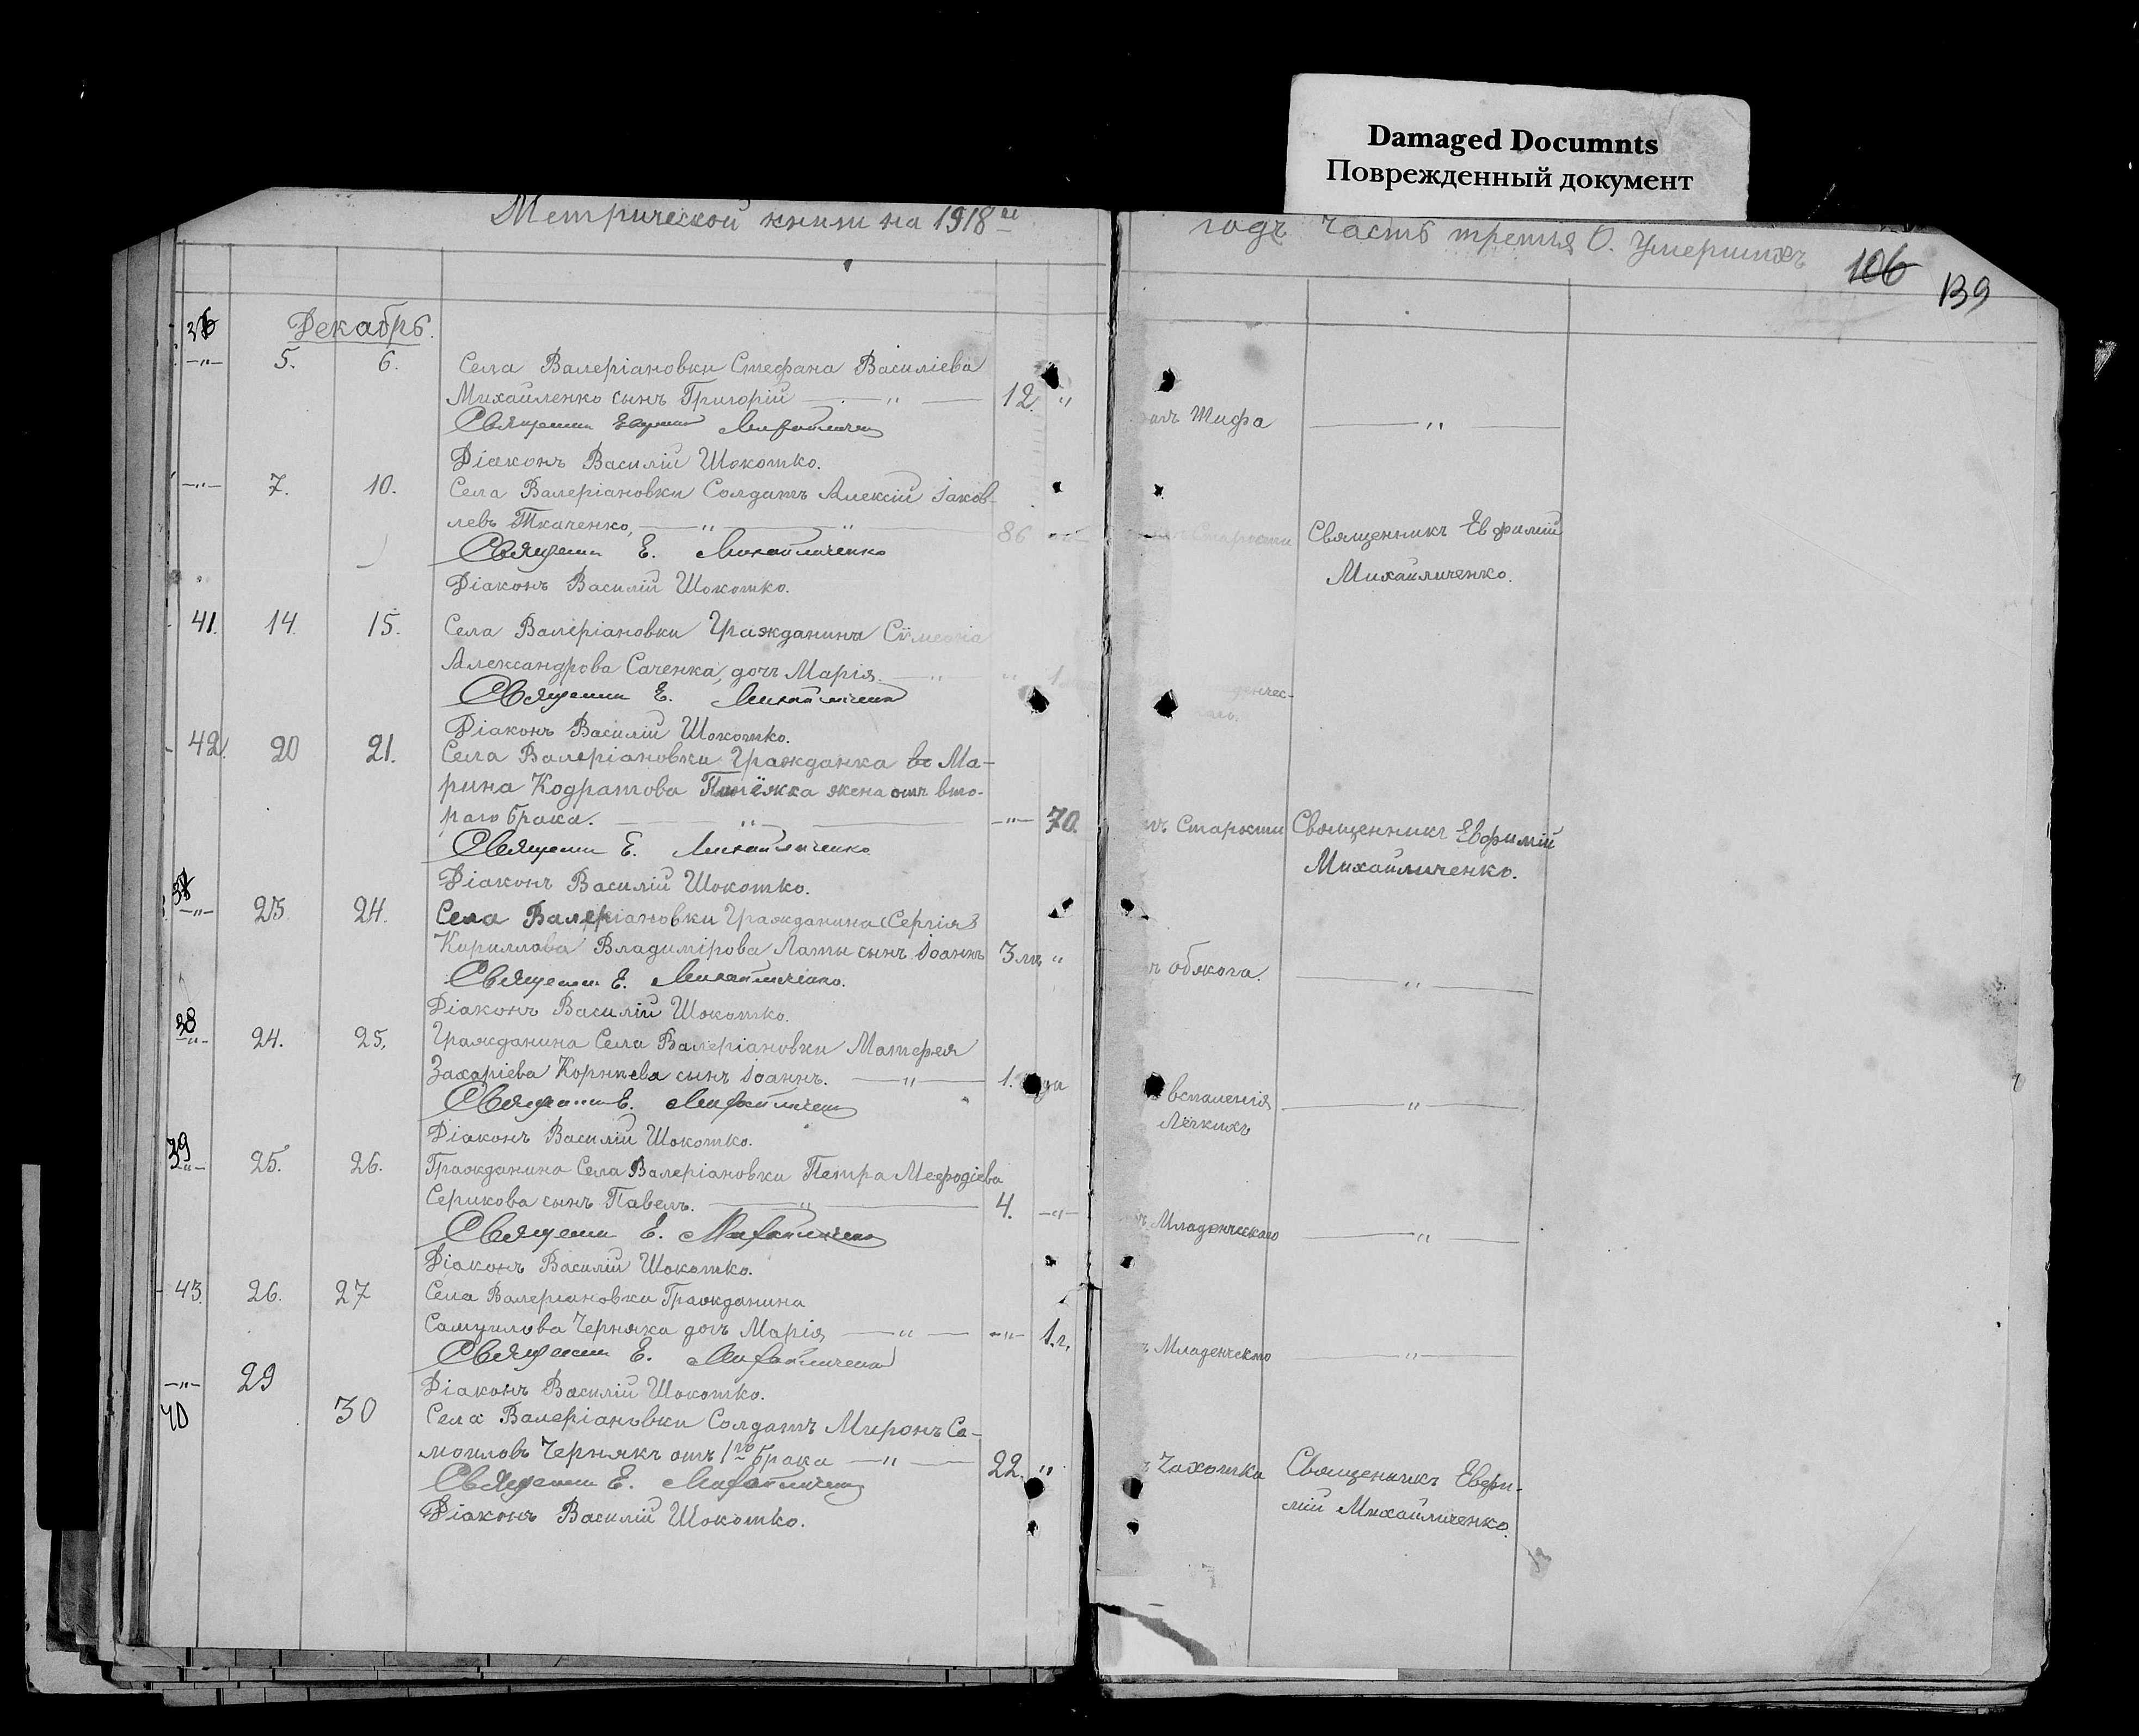 Damaged Documnts
Поврежденный документ
Метрической книги на 1918й
годъ Часть третія О. умершихъ
106
139
36
Декабрь.
-"- 5. 6. Села Валеріановки Стефана Василіева
Михайленко сынъ Григорій -"- 12. "
Тифа -"-
Священ Михайличенко
Діаконъ Василій Шокотко.
-"- 7. 10. Села Валеріановки Солдатъ Алексій Іаков-
левъ Ткаченко, -"- 86
Старости Священникъ Евфимій
Михайличенко.
Священ Е. Михайличенко
Діаконъ Василій Шокотко.
41. 14. 15. Села Валеріановки Гражданина Сѵмеона
Александрова Саченка, дочь Марія -"- " 1
денчес-
Священ Е. Михайличенко
Діаконъ Василій Шокотко.
42. 20 21. Села Валеріановки Гражданка Ма-
рина Кодратова жена отъ вто-
раго брака. -"- -"- 70.
Старости Священникъ Евфимій
Михайличенко.
Священ Е. Михайличенко
Діаконъ Василій Шокотко.
-"- 23 24. Села Валеріановки Гражданина (Сергія)
Кириллова Владимірова Латы сынъ Іоаннъ 3 м. "
обжога. -"-
Священ Е. Михайличенко.
Діаконъ Василій Шокотко.
38
-"- 24. 25. Гражданина Села Валеріановки Матфея
Захаріева Корнѣева сынъ Іоаннъ. -"- 1. года
воспаленія -"-
Лёгкихъ
Священ Е. Михайличенко
Діаконъ Василій Шокотко.
39
-"- 25. 26. Гражданина Села Валеріановки Петра Мефодіева
Серикова сынъ Павелъ. -"- 4. -"-
Младенческаго -"-
Священ Е. Михайличенко
Діаконъ Василій Шокотко.
43. 26. 27 Села Валеріановки Гражданина
Самуилова Черняка дочь Марія -"- -"- 1.г.
Младенческаго -"-
Священ Е. Михайличенко
Діаконъ Василій Шокотко.
-"- 29
40 30 Села Валеріановки Солдатъ Миронъ Са-
моиловъ Чернякъ отъ 1го брака -"- 22. "
Чахотка Священникъ Евфи-
мій Михайличенко.
Священ Е. Михайличенко
Діаконъ Василій Шокотко.